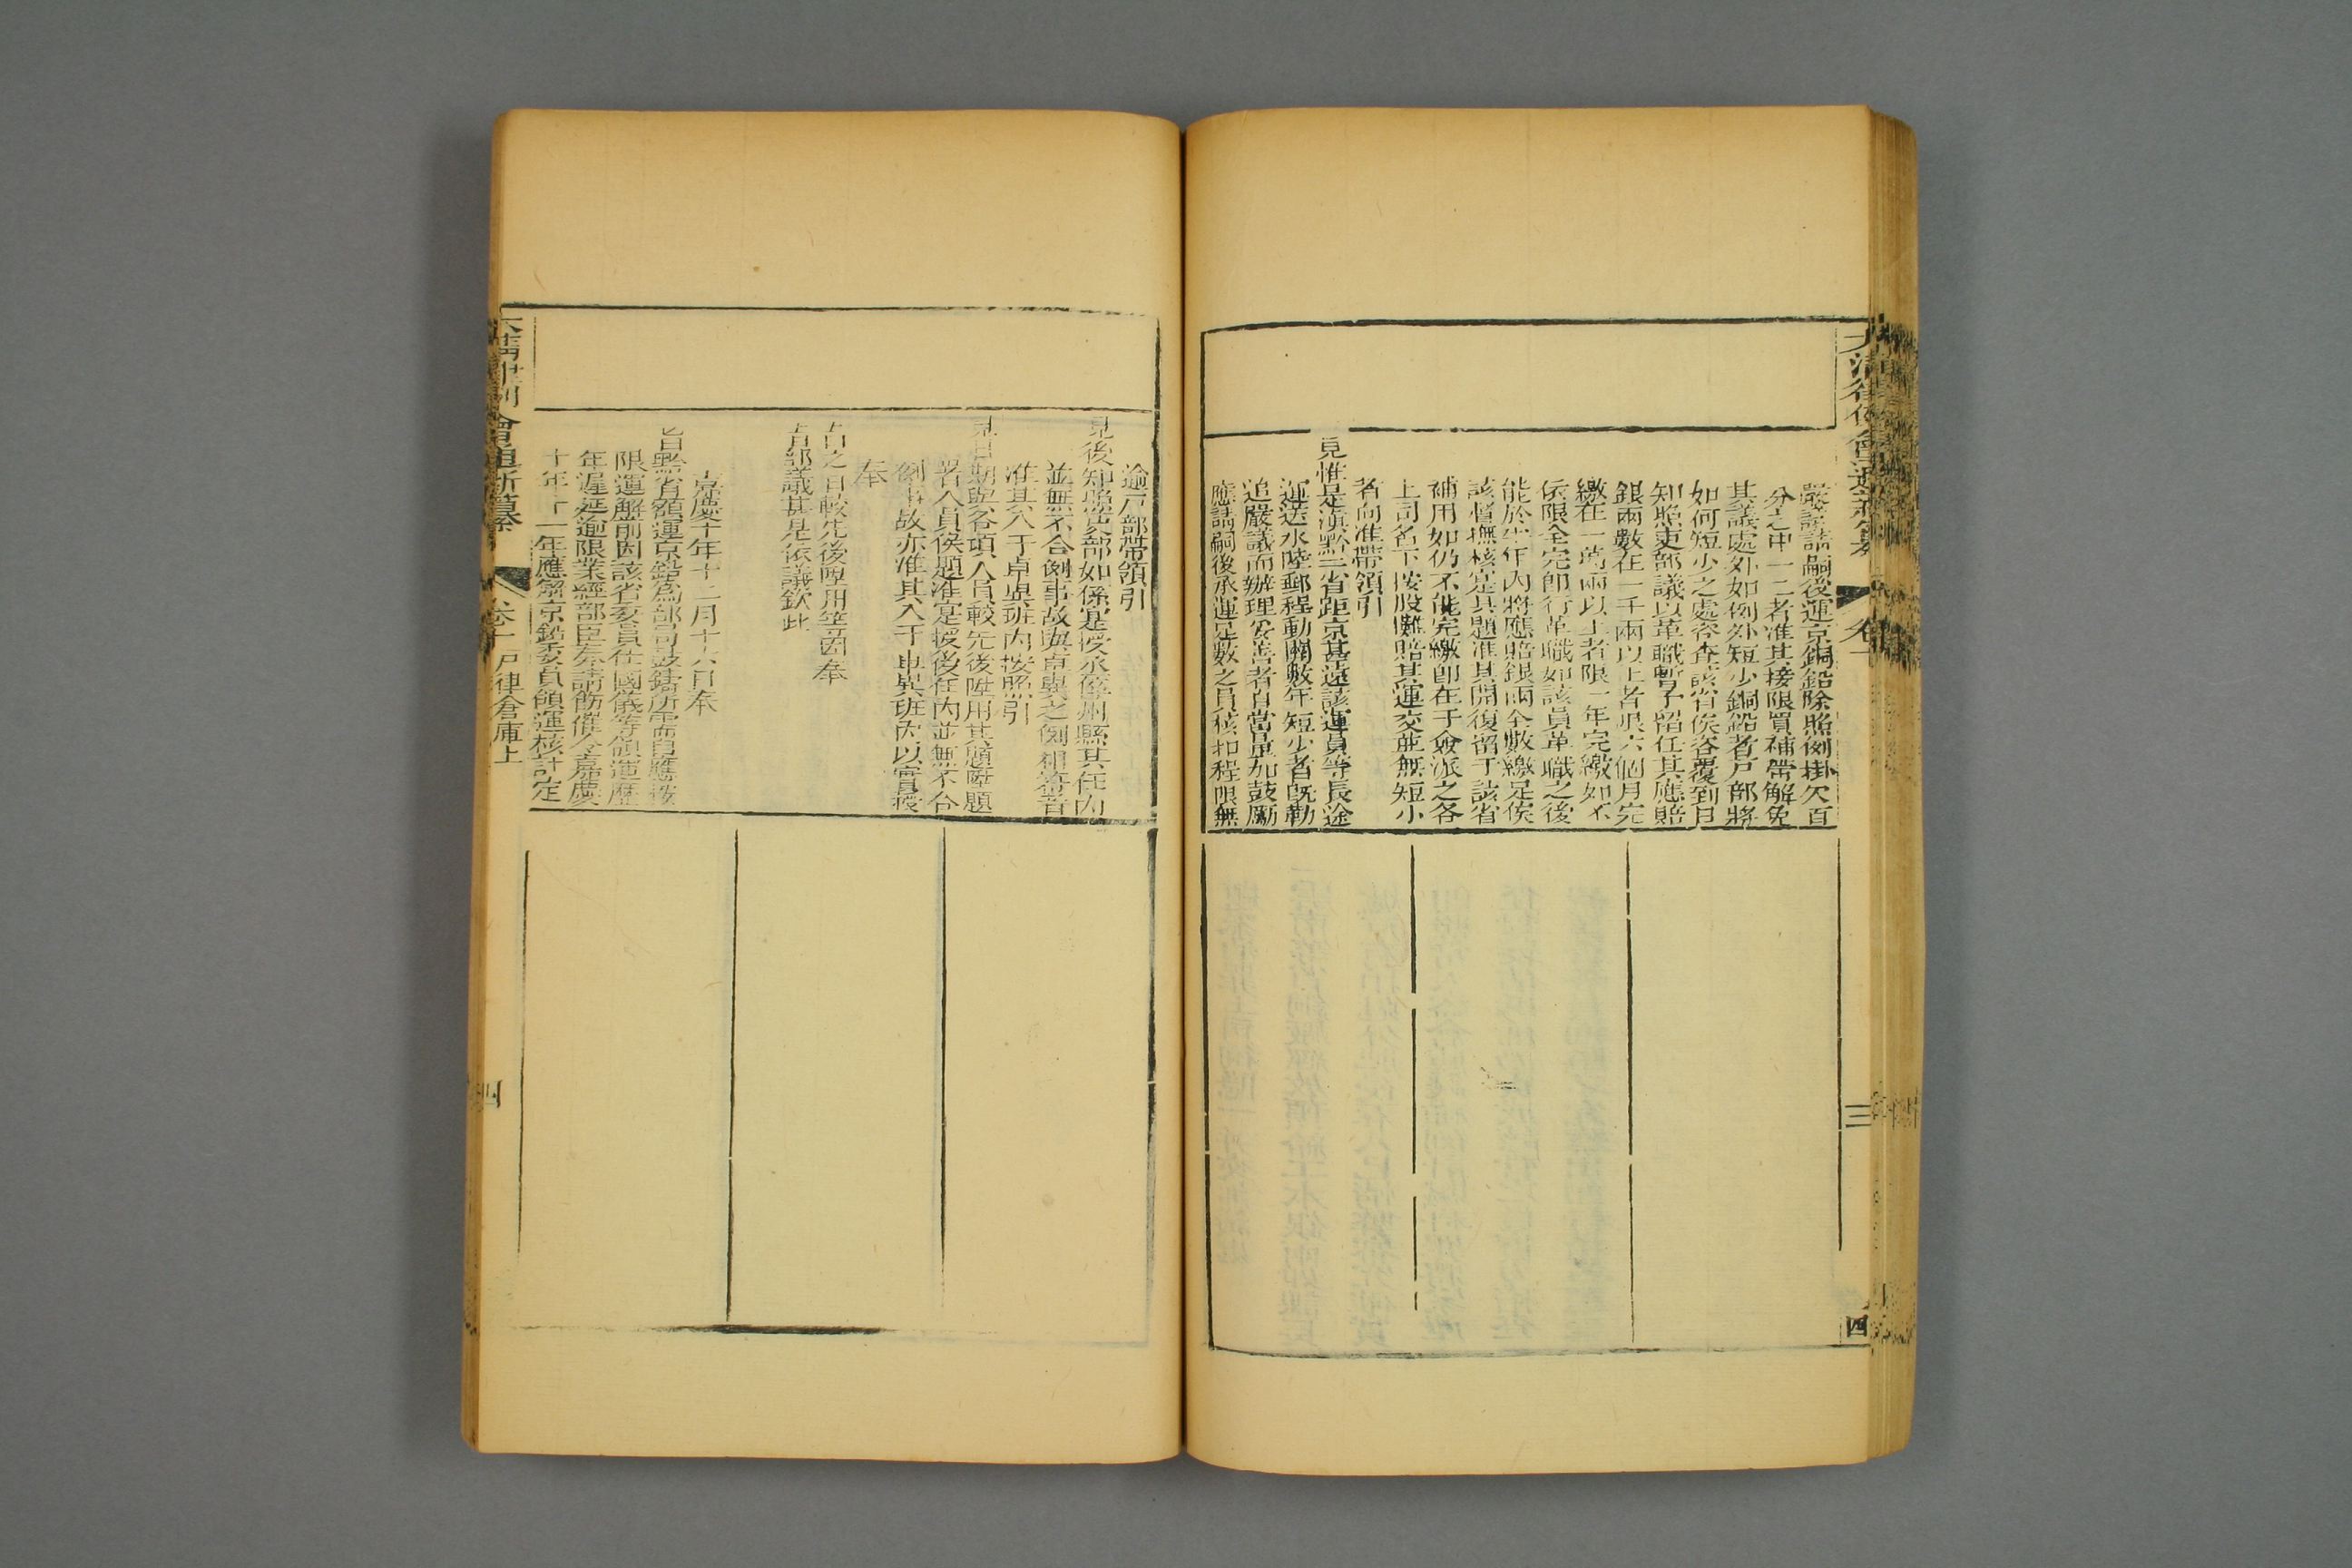 大清律例會通新纂
卷十
三
嚴議請嗣後運京銅鉛除照例掛欠百
分之中一二者准其接限買補帶解免
其議處外如例外短少銅鉛者戶部將
如何短少之處咨查該省俟咨覆到日
知照吏部議以革職暫予留任其應賠
銀兩數在一千兩以上者限六個月完
繳在一萬兩以上者限一年完繳如不
依限全完即行革職如該員革職之後
能於半年內將應賠銀兩全數繳足俟
該督撫核定具題准其開復留于該省
補用如仍不能完繳即在于僉派之各
上司名下按股攤賠其運交並無短少
者向准帶領引
見惟是滇黔二省距京甚遠該運員等長途
運送水陸郵程動關數年短少者既勒
追嚴議而辦理妥善者自當量加鼓勵
應請嗣後承運足數之員核扣程限無
逾戶部帶領引
見後知照吏部如係寔授丞倅州縣其任內
並無不合例事故與卓異之例相符者
准其入于卓異班內按照引
見日期與各項人員較先後陞用其題陞題
署人員俟題准寔授後任內並無不合
例事故亦准其入于卓異班內以實授
奉
旨之日較先後陞用等因奉
旨部議甚是依議欽此
嘉慶十年十二月十六日奉
旨黔省額運京鉛為部局鼓鑄所需自應按
限運解前因該省委員任國儀等領運歷
年遲延逾限業經部臣奏請飭催今嘉慶
十年十一年應解京鉛委員領運核計定
大清律例會通新纂
卷十戶律倉庫上
四